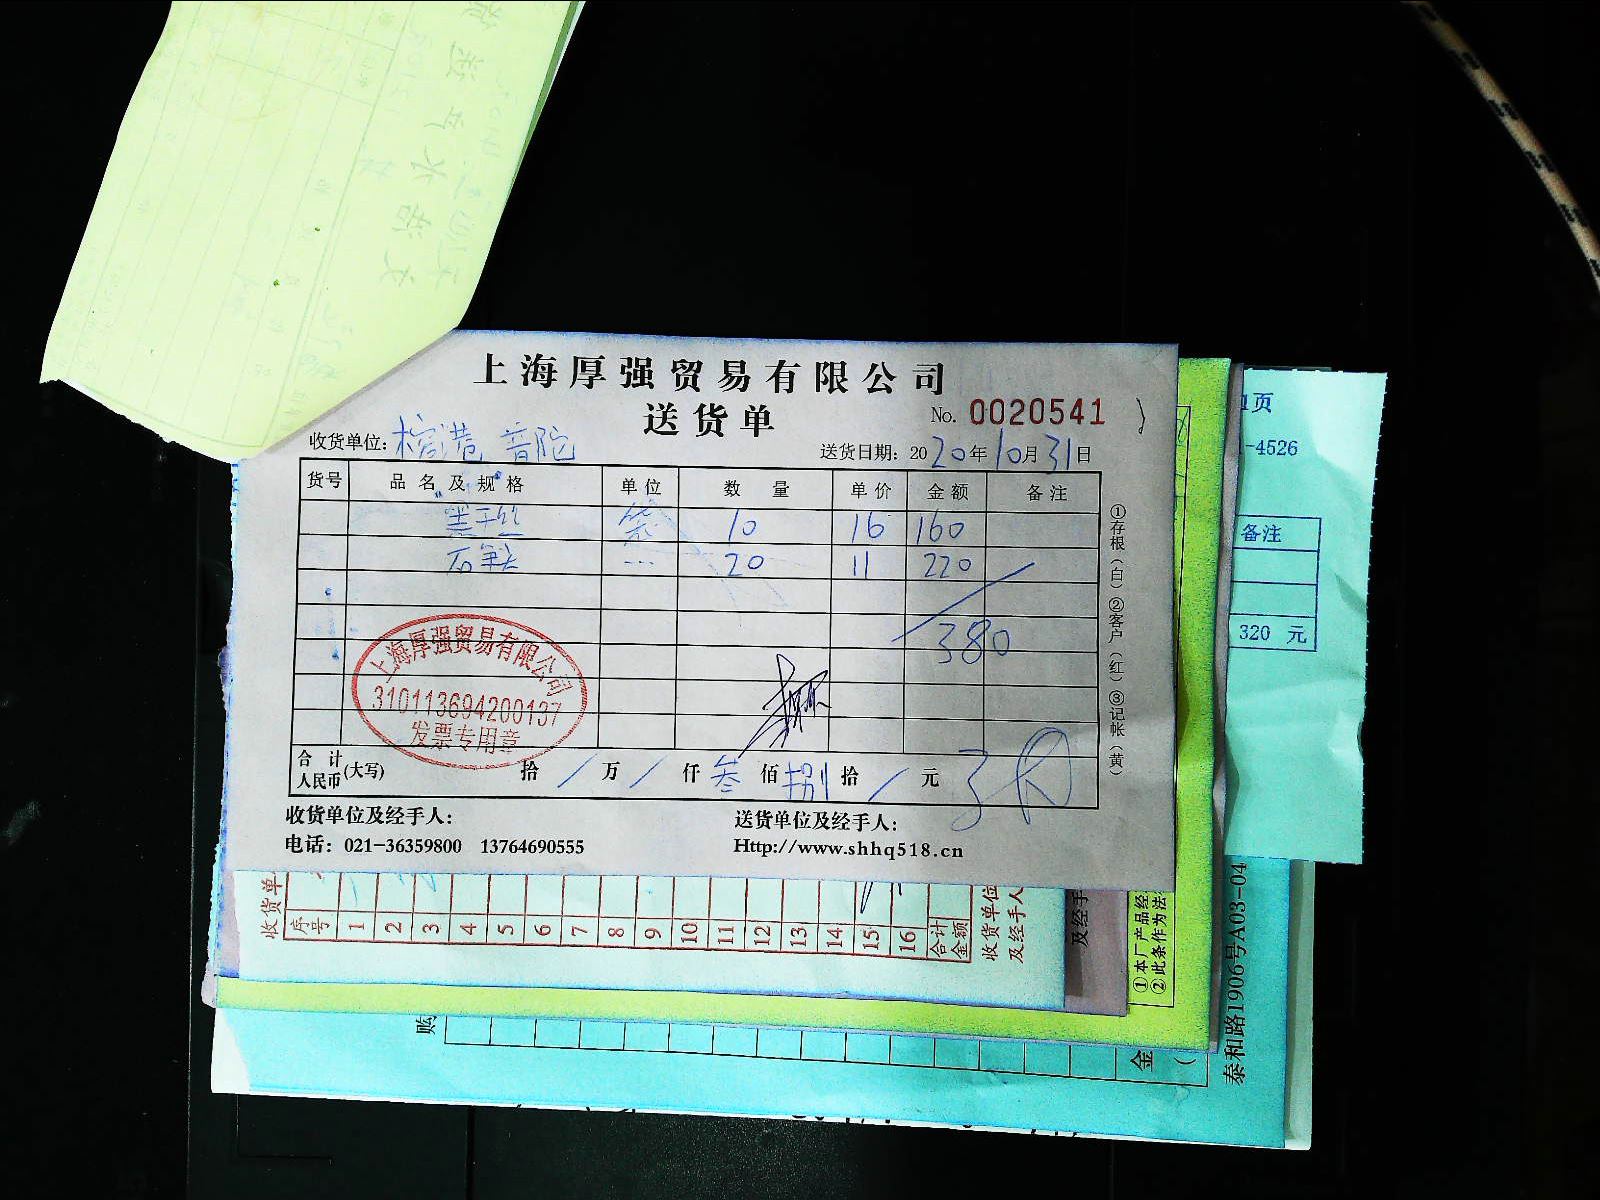 上海厚强贸易有限公司
送货单
No. 0020541
收货单位: 普陀
送货日期: 2020年10月31日
货号 品名及规格 单位 数量 单价 金额 备注
袋 10 16 160
20 11 220
380
上海厚强贸易有限公司
310113694200137
发票专用章
合计人民币(大写) 拾 / 万 / 仟 叁 佰 捌 拾 / 元
收货单位及经手人:
送货单位及经手人:
电话: 021-36359800 13764690555
Http://www.shhq518.cn
①存根(白) ②客户(红) ③记帐(黄)
1页
-4526
备注
320 元
收货单
序号 1 2 3 4 5 6 7 8 9 10 11 12 13 14 15 16 合计金额
收货单位及经手人
及经手
①本厂产品经
②此条作为法
购
金
泰和路1906号A03-04